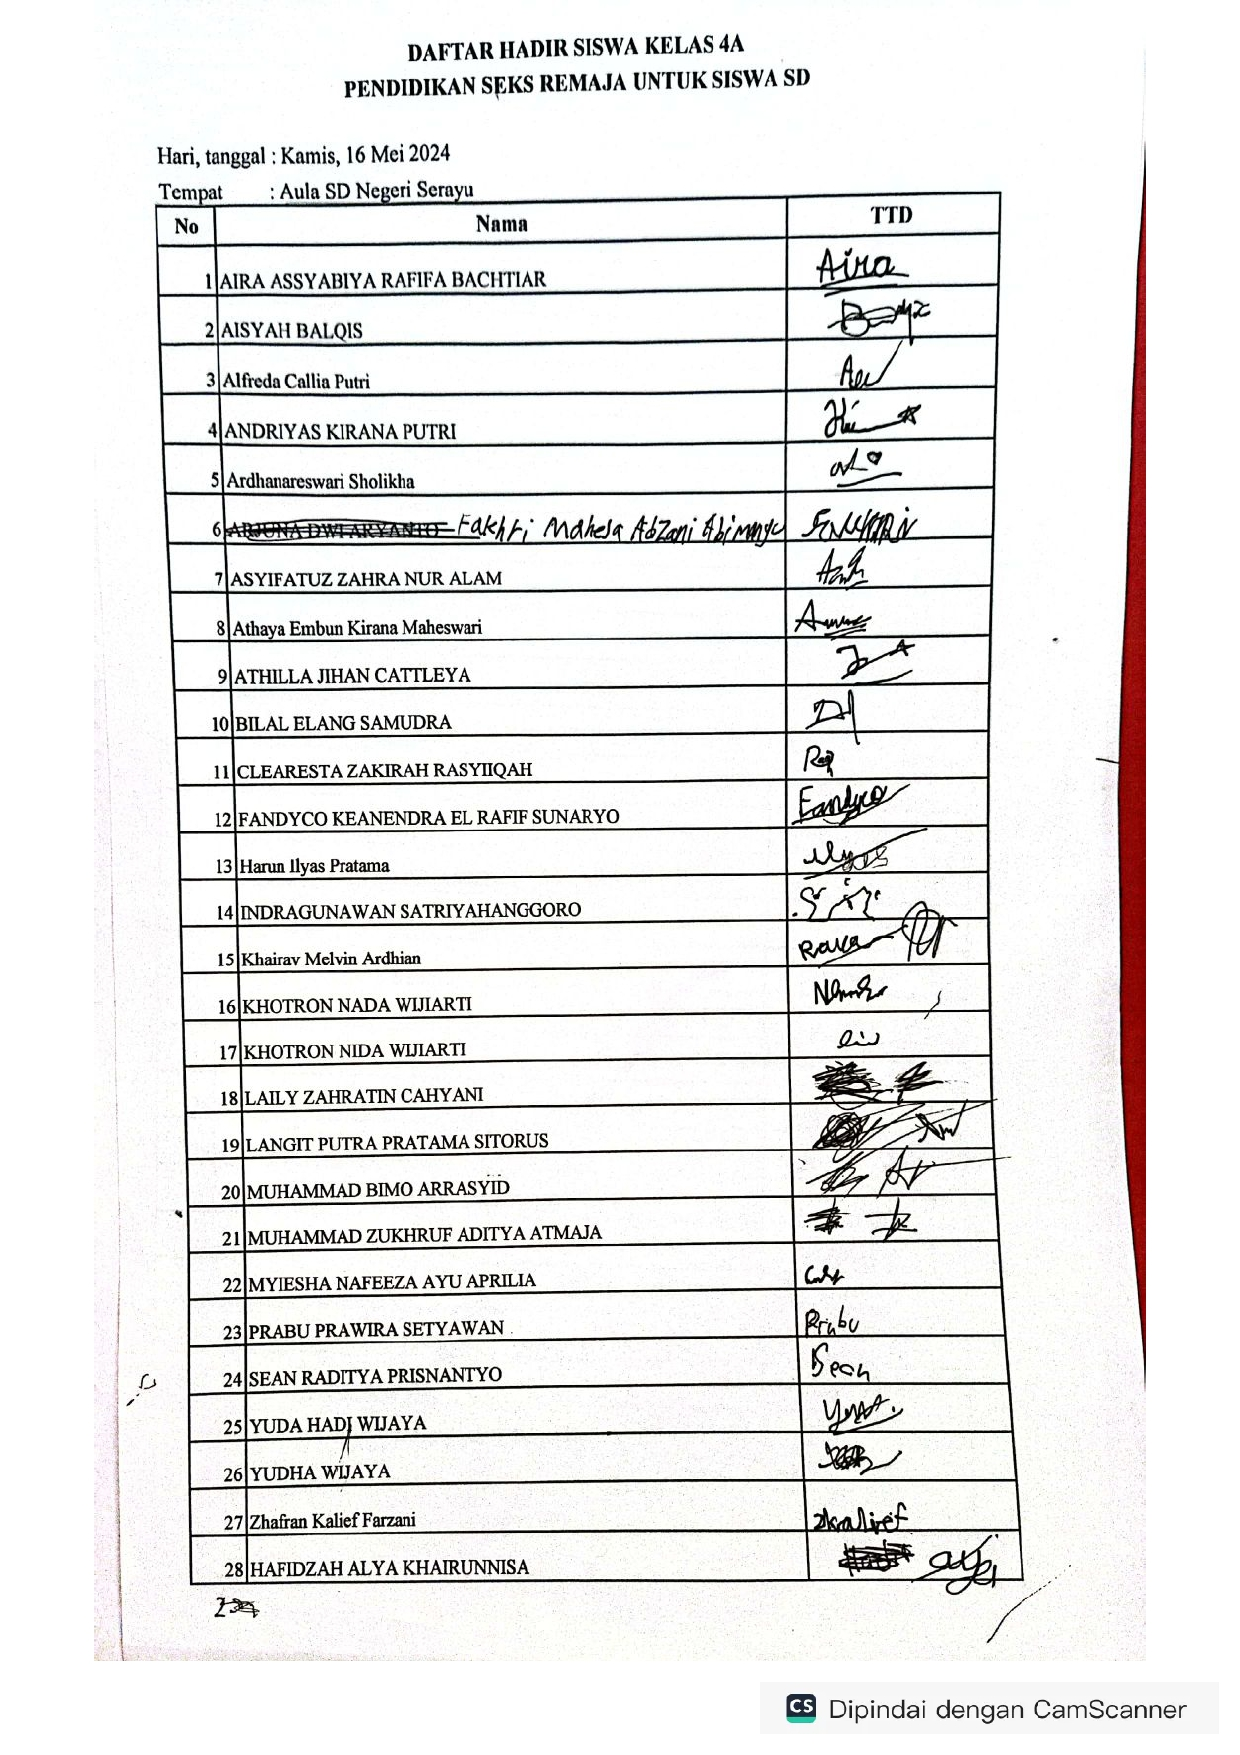 DAFTAR HADIR SISWA KELAS 4A
PENDIDIKAN SEKS REMAJA UNTUK SISWA SD
Hari, tanggal : Kamis, 16 Mei 2024
Tempat : Aula SD Negeri Serayu
No Nama TTD
1 AIRA ASSYABIYA RAFIFA BACHTIAR Aira
2 AISYAH BALQIS
3 Alfreda Callia Putri
4 ANDRIYAS KIRANA PUTRI
5 Ardhanareswari Sholikha
6 ARJUNA DWI ARYANTO Fakhri Mahesa Abzani Abimanyu
7 ASYIFATUZ ZAHRA NUR ALAM
8 Athaya Embun Kirana Maheswari
9 ATHILLA JIHAN CATTLEYA
10 BILAL ELANG SAMUDRA
11 CLEARESTA ZAKIRAH RASYIIQAH
12 FANDYCO KEANENDRA EL RAFIF SUNARYO Fandyco
13 Harun Ilyas Pratama Ilyas
14 INDRAGUNAWAN SATRIYAHANGGORO
15 Khairav Melvin Ardhian
16 KHOTRON NADA WIJIARTI
17 KHOTRON NIDA WIJIARTI
18 LAILY ZAHRATIN CAHYANI
19 LANGIT PUTRA PRATAMA SITORUS
20 MUHAMMAD BIMO ARRASYID
21 MUHAMMAD ZUKHRUF ADITYA ATMAJA
22 MYIESHA NAFEEZA AYU APRILIA
23 PRABU PRAWIRA SETYAWAN Prabu
24 SEAN RADITYA PRISNANTYO Sean
25 YUDA HADI WIJAYA
26 YUDHA WIJAYA
27 Zhafran Kalief Farzani zkalief
28 HAFIDZAH ALYA KHAIRUNNISA
CS Dipindai dengan CamScanner